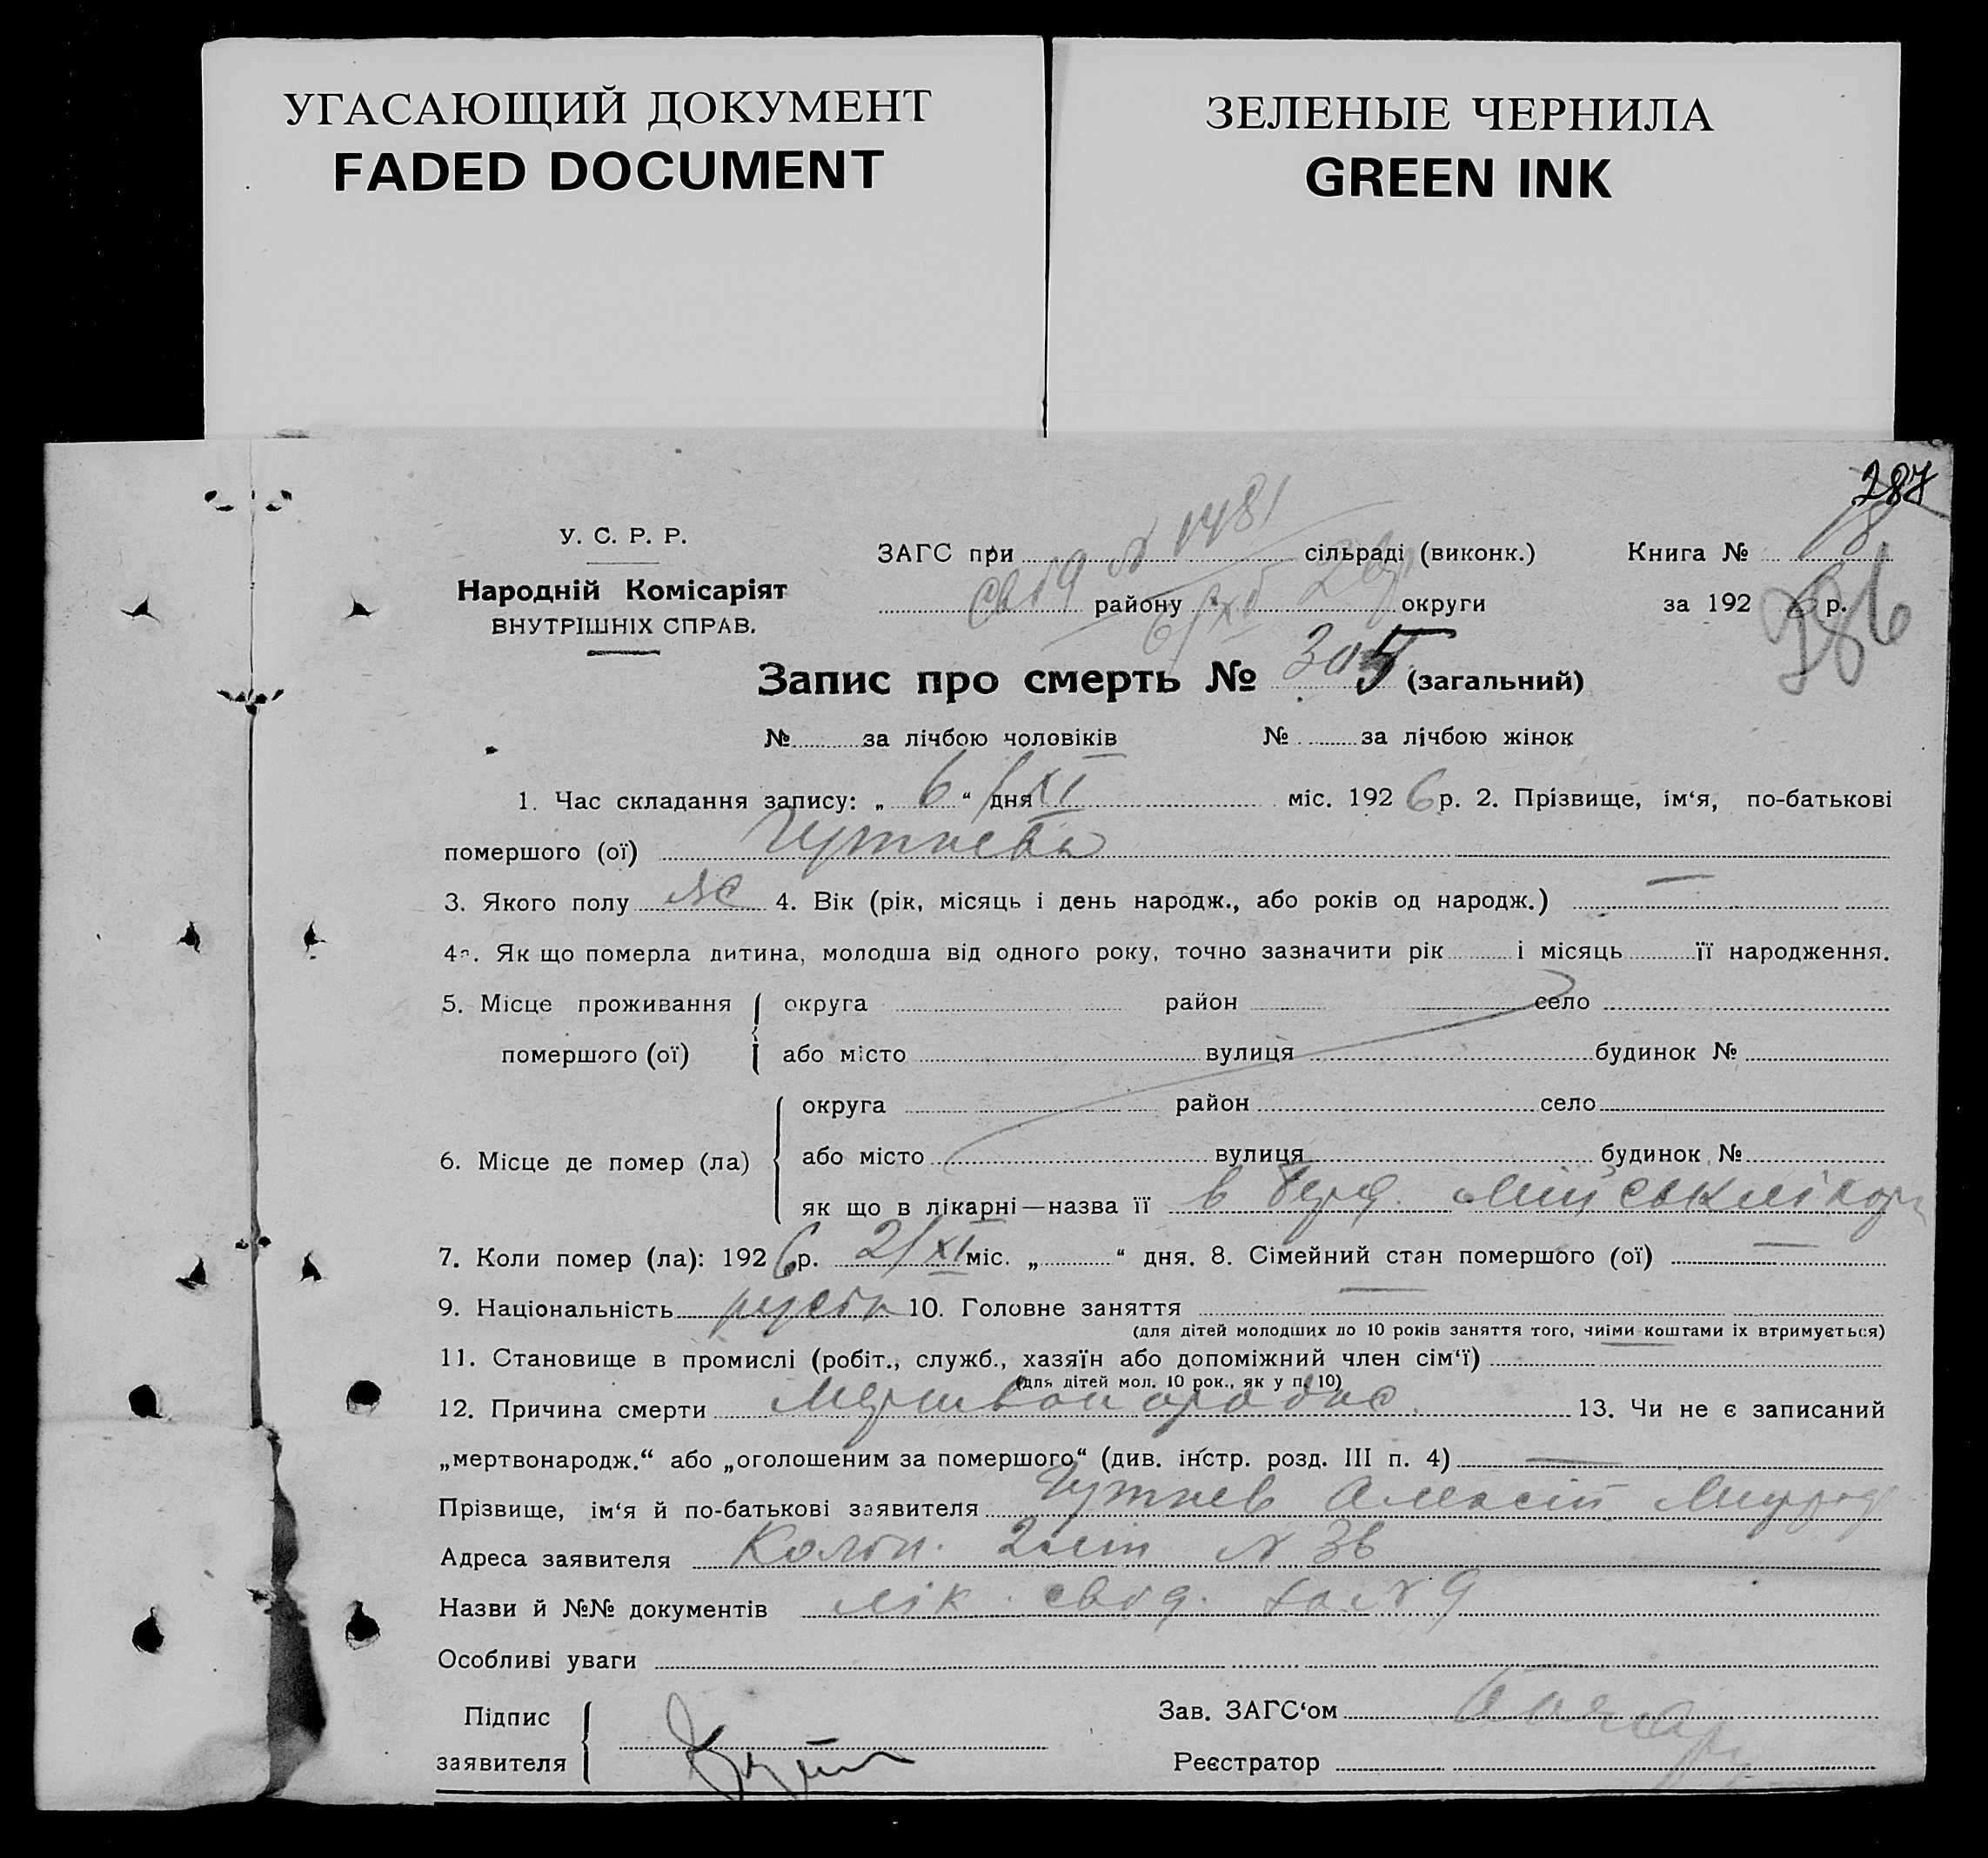 УГАСАЮЩИЙ ДОКУМЕНТ
FADED DOCUMENT
ЗЕЛЕНЫЕ ЧЕРНИЛА
GREEN INK
287
У. С. Р. Р.
Народній Комісаріят
ВНУТРІШНІХ СПРАВ.
ЗАГС при № 1481 сільраді (виконк.)
району округи
Книга №
за 192 р.
286
Запис про смерть № 305 (загальний)
№ за лічбою чоловіків № за лічбою жінок
1. Час складання запису: „ 6 “ дня XI міс. 192 6 р. 2. Прізвище, ім‘я, по-батькові
помершого (ої) Гутнева
3. Якого полу ж 4. Вік (рік, місяць і день народж., або років од народж.) —
4а. Як що померла дитина, молодша від одного року, точно зазначити рік і місяць її народження.
5. Місце проживання помершого (ої) { округа район село
або місто вулиця будинок №
6. Місце де помер (ла) { округа район село
або місто вулиця будинок №
як що в лікарні—назва її в
7. Коли помер (ла): 192 6 р. 2/XI міс. „ “ дня. 8. Сімейний стан помершого (ої) —
9. Національність 10. Головне заняття —
(для дітей молодших до 10 років заняття того, чиїми коштами їх втримується)
11. Становище в промислі (робіт., служб., хазяїн або допоміжний член сім‘ї) —
(для дітей мол. 10 рок., як у п. 10)
12. Причина смерти 13. Чи не є записаний
„мертвонародж.“ або „оголошеним за помершого“ (див. інстр. розд. III п. 4) —
Прізвище, ім‘я й по-батькові заявителя Гутнев
Адреса заявителя № 36
Назви й №№ документів лік. свід. № 9
Особливі уваги
Підпис заявителя {
Зав. ЗАГС‘ом
Реєстратор